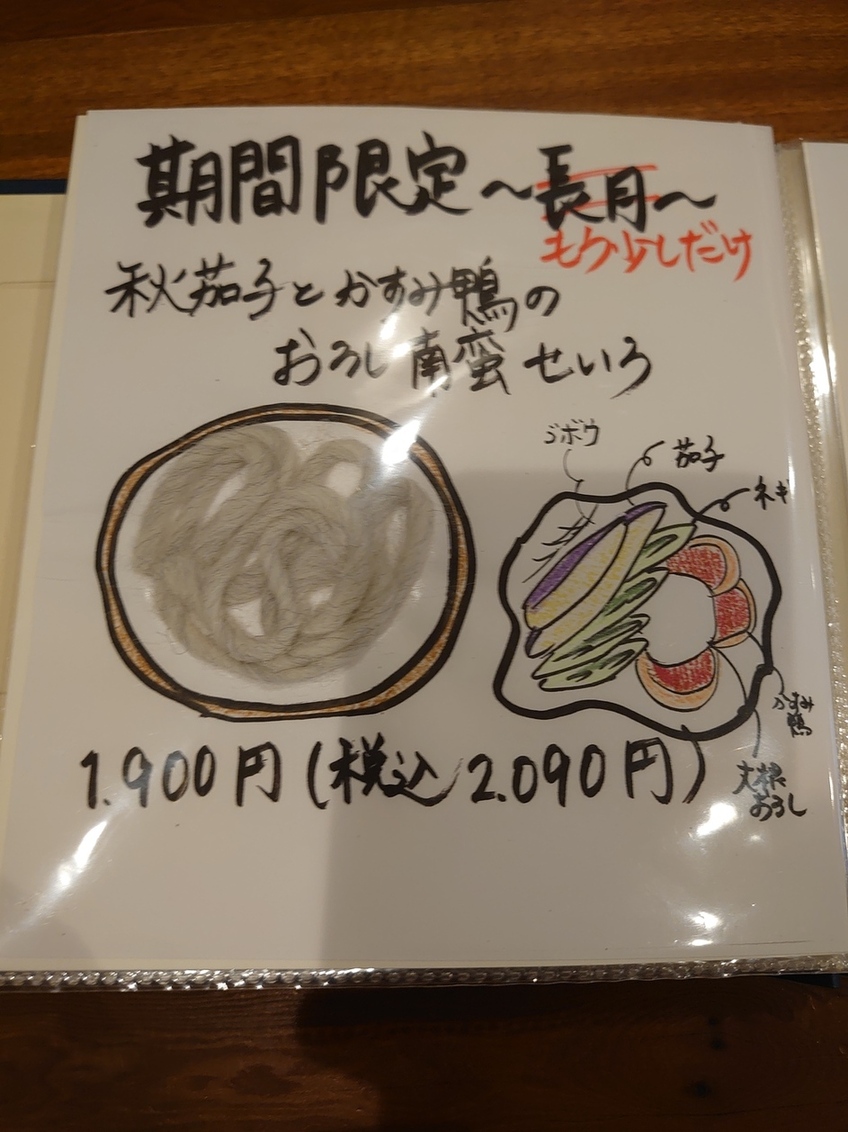 期間限定〜長月〜
もう少しだけ
秋茄子とかすみ鴨の
おろし南蛮せいろ
ゴボウ
茄子
ネギ
かすみ
鴨
大根
おろし
1.900円(税込2.090円)